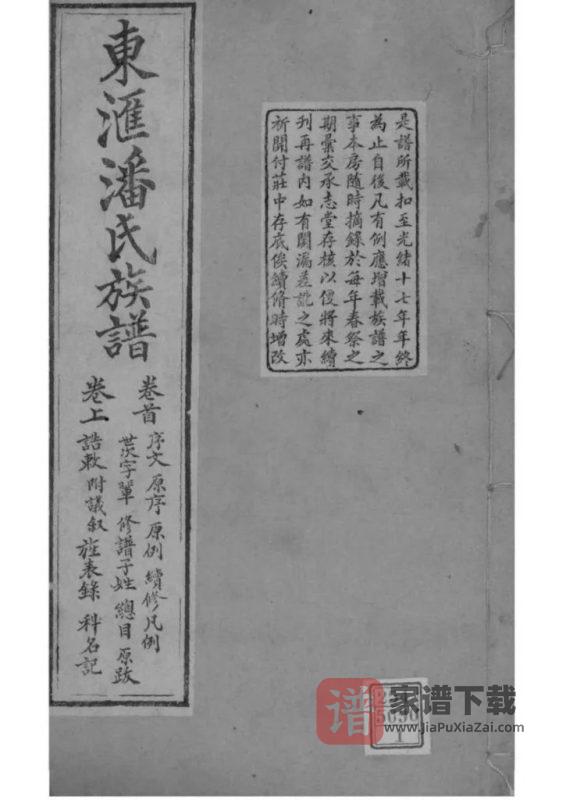 東滙潘氏族譜
卷首 序文 原序 原例 續修凡例
世次字輩 修譜子姓 總目 原跋
卷上 誥敕 附議叙 旌表錄 科名記
是譜所載扣至光緒十七年年終
為止自後凡有例應增載族譜之
事本房隨時摘錄於每年春祭之
期彙交承志堂存核以便將來續
刊再譜内如有闕漏差訛之處亦
祈開付莊中存底俟續脩時增改
谱 家谱下载
www.JiaPuXiaZai.com